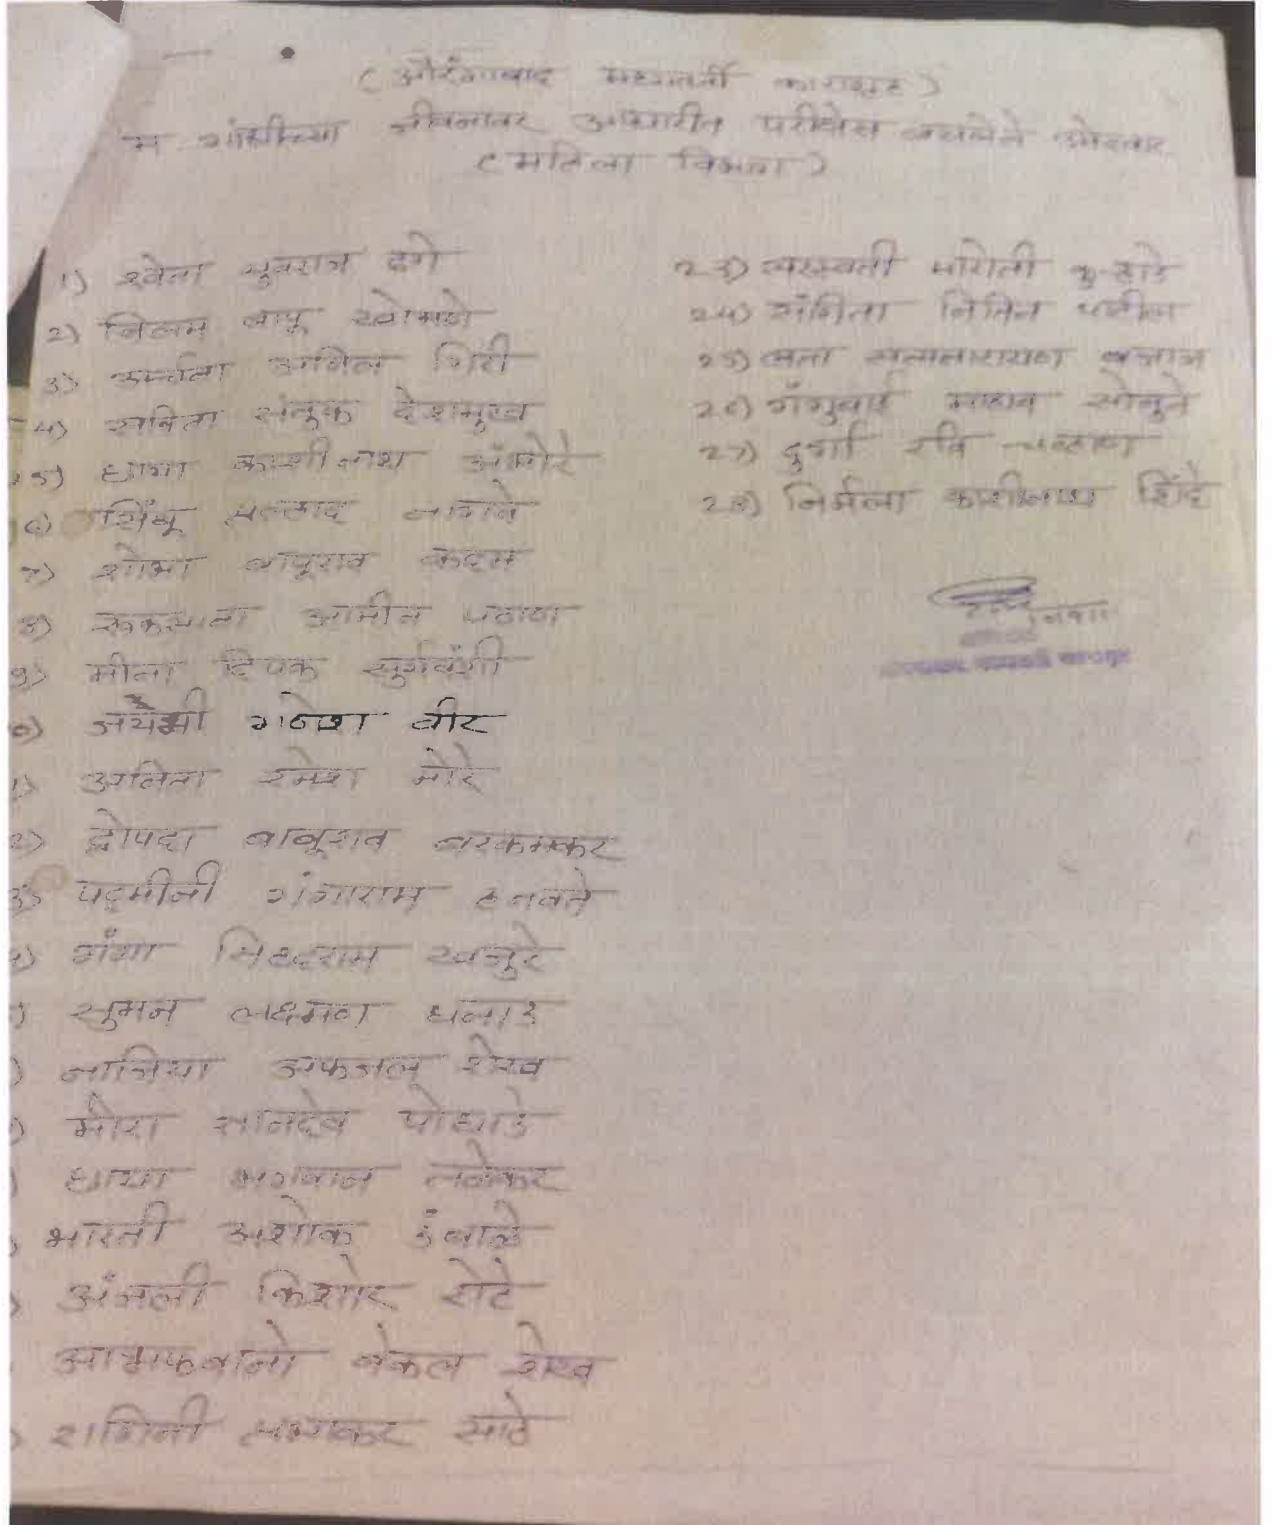 (औरंगाबाद मध्यवर्ती कारागृह)
म गांधीच्या जीवनावर आधारीत परीक्षेस बसलेले उमेदवार
(महिला विभाग)
1) श्वेता युवराज ढगे
2) निलम बापू खोमणे
3) अनिल गिरी
4) सविता देशमुख
5) काशीनाथ अंभोरे
6) प्रल्हाद नागवे
7) शोभा बापूराव कदम
8) रुकसाना आमीन पठाण
9) मीना दिपक सुर्यवंशी
0) जयश्री गणेश वीर
1) अनिता रमेश मोरे
2) द्रोपदा बाबूराव
3) पद्मीनी गंगाराम हनवते
) गंगा सिध्दराम खजुरे
) सुमन लक्ष्मण धनाड
) नाजिया अफजल शेख
) मीरा ज्ञानदेव पोघाडे
) छाया भगवान तळेकर
) भारती अशोक डंबाळे
) अंजली किशोर शेटे
शेख
) रागिनी प्रभाकर साठे
23) सरस्वती मारोती कु-हाडे
24) संगिता नितिन पाटील
25) लता सत्यनारायण बजाज
26) गंगुबाई माधव सोनुने
27) दुर्गा रवि चव्हाण
28) निर्मला काशीनाथ शिंदे